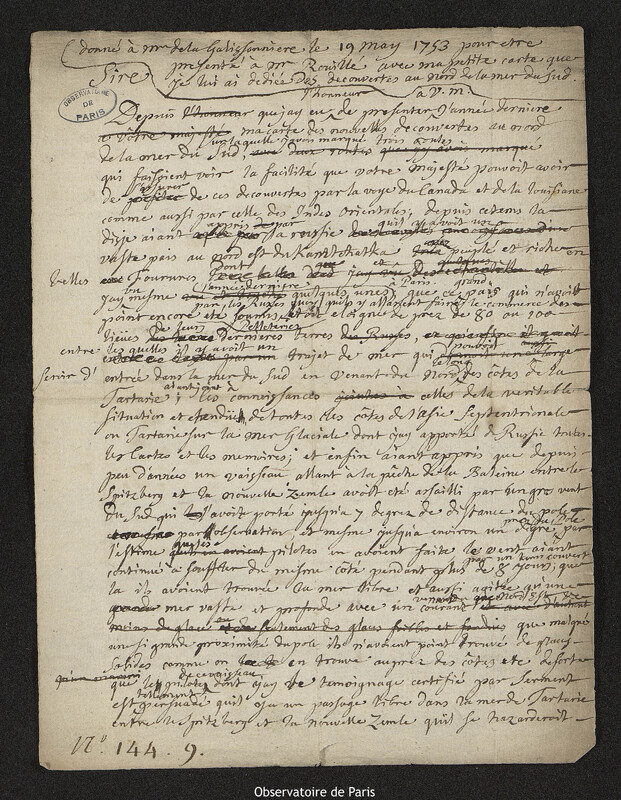 donné à mr de la Galissonniere le 19 may 1753 pour etre
presenté à mr Rouillé avec ma petite carte que
je lui ai dediée des decouvertes au nord de la mer du sud.
Sire
OBSERVATOIRE
DE
PARIS
l'honneur à V. M.
Depuis l'honneur que j'ay eu de presenter l'année derniere
à votre majesté ma carte des nouvelles decouvertes au nord
sur laquelle j'avois marqué trois routes
de la mer du Sud, avec deux routes que j'y avois marqué
qui faisoient voir la facilité que votre Majesté pouvoit avoir
de ces decouvertes par la voye du Canada et de la Louisiane
comme aussi par celle des Indes orientales; depuis ce tems la
dis je aiant appris par la russie qu'il y avoit un
vaste pais au nord est du Kamtchatka peuplé et riche en
belles Fourures dont
j'ay meme vu l'année derniere à Paris quelques unes; que ce pais qui n'avoit
point encore eté soumis par les Russes quoy qu'ils y allassent faire un grand commerce de
Pelleteries eloigné de prez de 80 ou 100
lieües de leurs dernieres terres
entre lesquelles il y avoit un trajet de mer qui pouvoit aussi
servir d'entrée dans la mer du Sud en venant du Nord le long des côtes de la
Tartarie; aiant joint à les connoissances celles de la veritable
situation et etendüe de toutes les côtes de l'asie septentrionale
ou Tartarie sur la mer Glaciale dont j'ay apporté de Russie toutes
les Cartes et les memoires; et enfin aiant appris que depuis
peu d'années un vaisseau allant à la pêche de la Baleine entre le
Spitzberg et la nouvelle Zemle avoit eté assailli par un gros vent
du Sud qui l'avoit porté jusqu'a 7 degrez de distance du pole
par observation, et meme jusqu'a environ un degré prez du Pole par
l'estime que les pilotes en avoient faite le vent aiant
continué à souffler du même côté pendant plus de 8 jours par un tems couvert; que
la ils avoient trouvé la mer libre et aussi agitée qu'une
mer vaste et profonde avec un courant
que malgré
un si grande proximité du pole ils n'avoient point trouvé de glaces
solides comme on en trouve auprez des côtes etc. desorte
que les pilotes de ce vaisseau dont j'ay le temoignage certifié par serment
est tellement persuadé qu'il y a un passage libre dans la mer de Tartarie
entre le Spitzberg et la nouvelle Zemle qu'il se hazarderoit
N.° 144. 9.
Observatoire de Paris